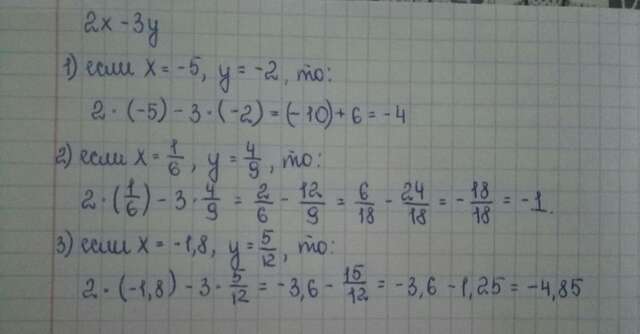 2x - 3y
1) если x = -5, y = -2, то:
2 · (-5) - 3 · (-2) = (-10) + 6 = -4
2) если x = 1/6, y = 4/9, то:
2 · (1/6) - 3 · 4/9 = 2/6 - 12/9 = 6/18 - 24/18 = - 18/18 = -1.
3) если x = -1,8, y = 5/12, то:
2 · (-1,8) - 3 · 5/12 = -3,6 - 15/12 = -3,6 - 1,25 = -4,85